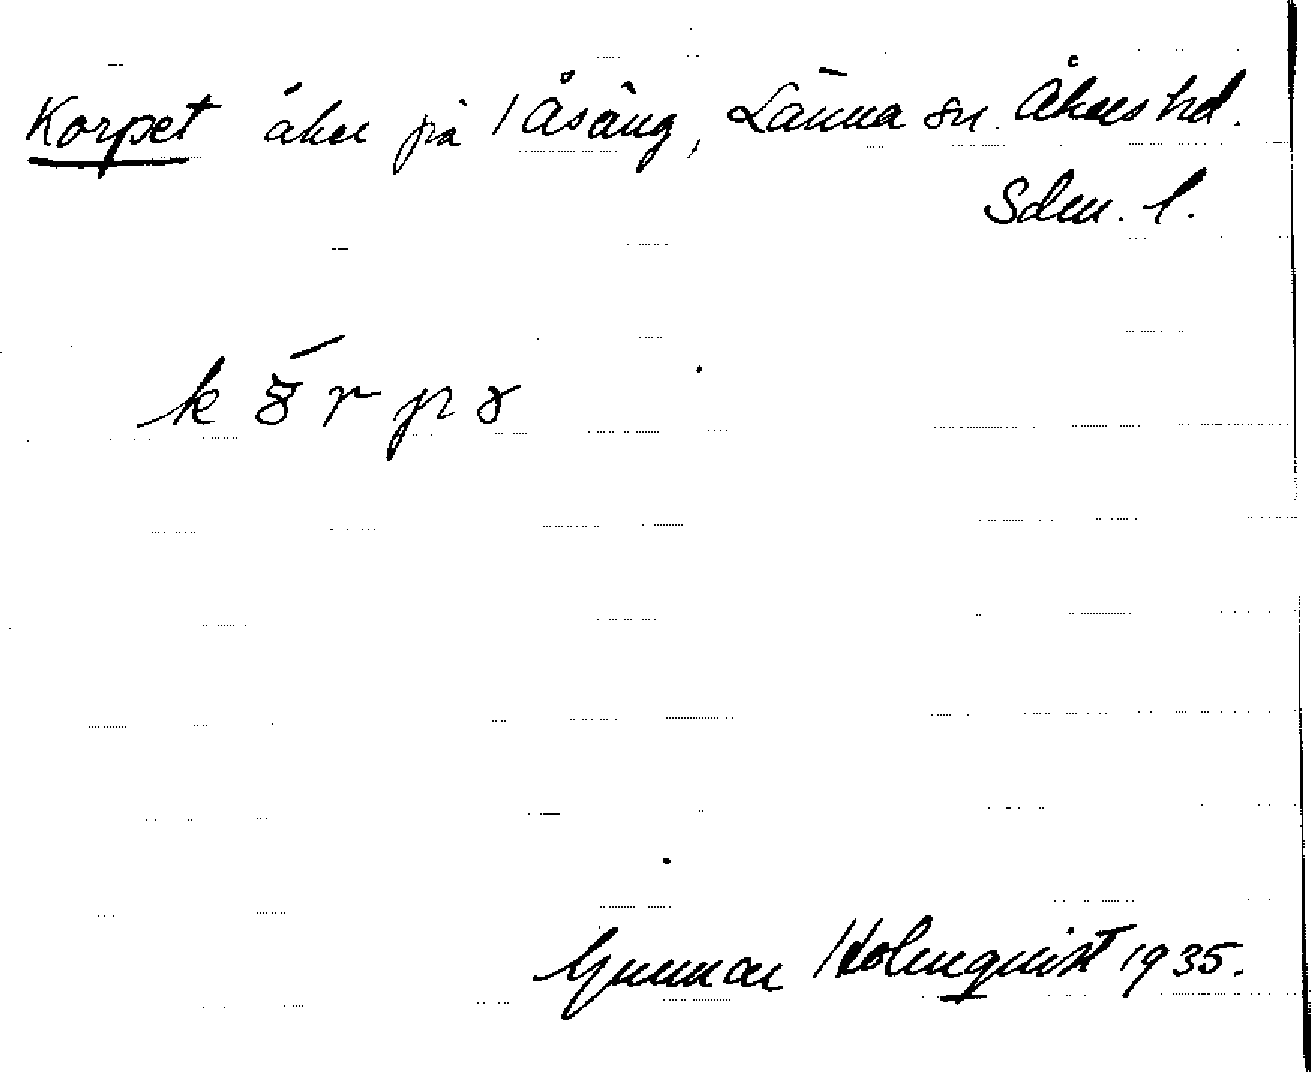 Korpet åker på 1 Åsäng, Länna sn. Åkers hd.
Sdm. l.
Gunnar Holmquist 1935.